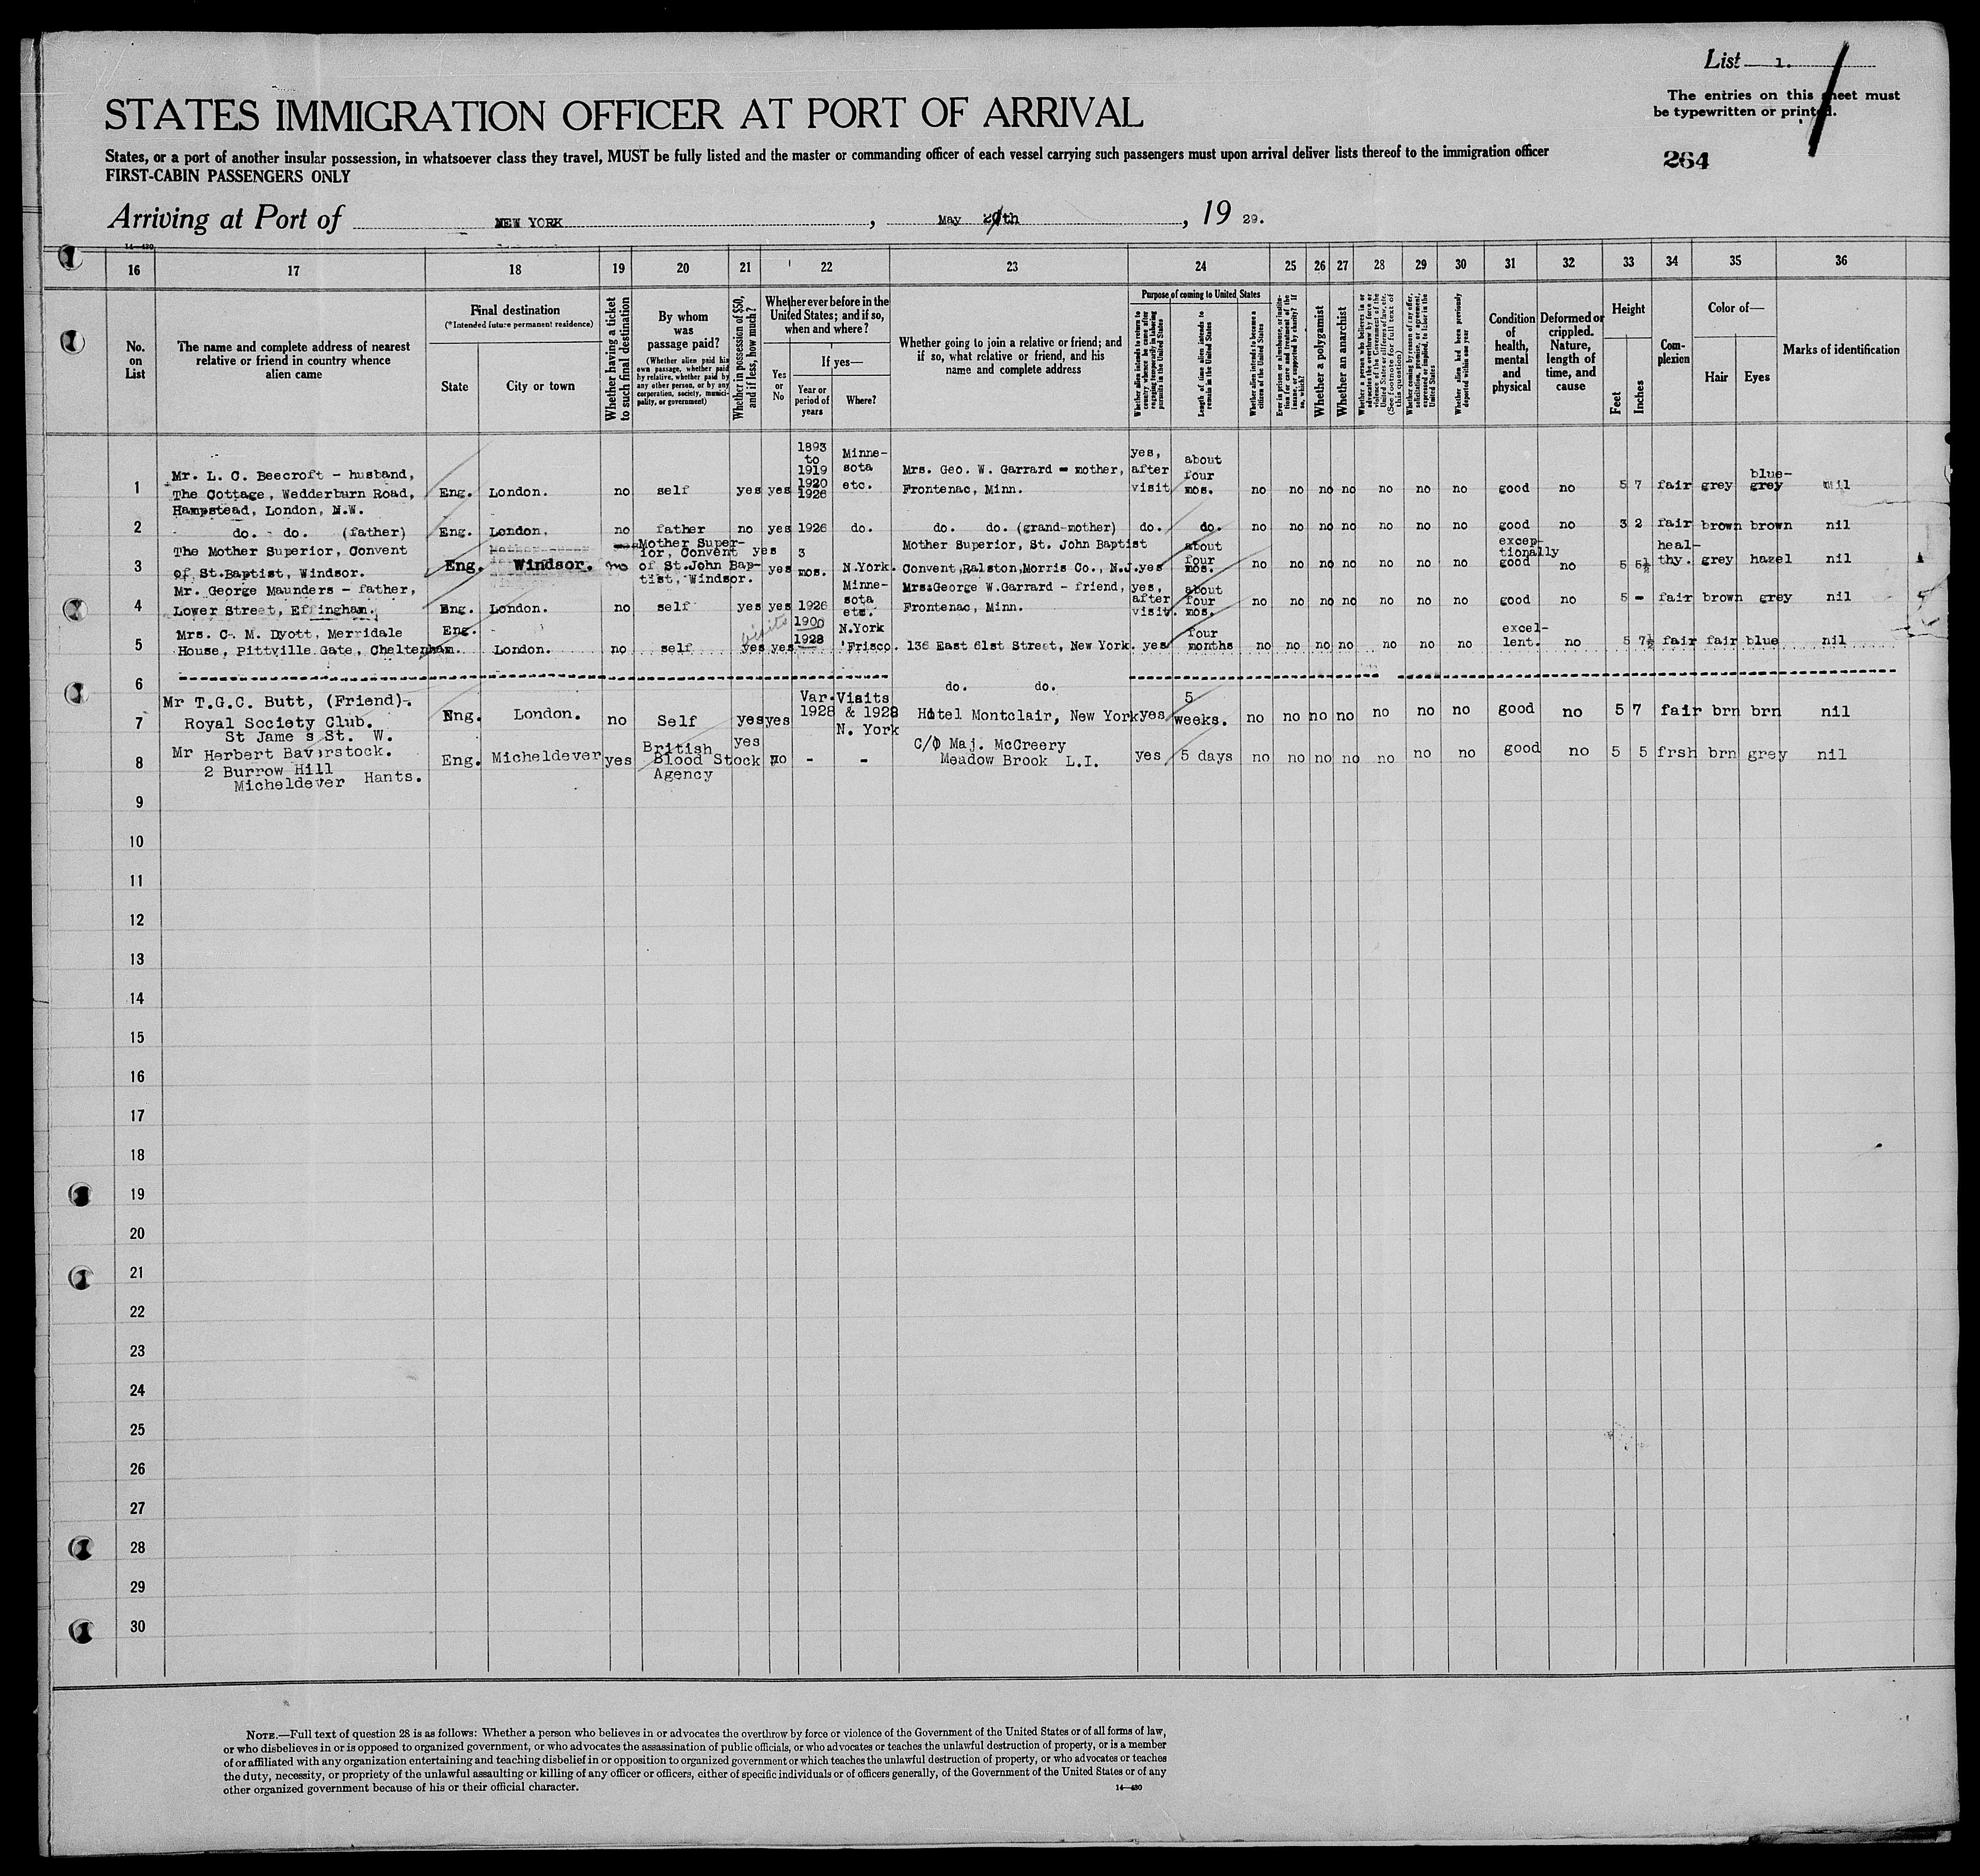 List 1.
The entries on this sheet must
be typewritten or printed.
264
STATES IMMIGRATION OFFICER AT PORT OF ARRIVAL
States, or a port of another insular possession, in whatsoever class they travel, MUST be fully listed and the master or commanding officer of each vessel carrying such passengers must upon arrival deliver lists thereof to the immigration officer
FIRST-CABIN PASSENGERS ONLY
Arriving at Port of NEW YORK, May th, 19 29.
14—430
16 17 18 19 20 21 22 23 24 25 26 27 28 29 30 31 32 33 34 35 36
No. on List
The name and complete address of nearest relative or friend in country whence alien came
Final destination
(*Intended future permanent residence)
State
City or town
Whether having a ticket to such final destination
By whom was passage paid?
(Whether alien paid his own passage, whether paid by relative, whether paid by any other person, or by any corporation, society, municipality, or government)
Whether in possession of $50, and if less, how much?
Whether ever before in the United States; and if so, when and where?
Yes or No
If yes—
Year or period of years
Where?
Whether going to join a relative or friend; and if so, what relative or friend, and his name and complete address
Purpose of coming to United States
Whether alien intends to return to country whence he came after engaging temporarily in laboring pursuits in the United States
Length of time alien intends to remain in the United States
Whether alien intends to become a citizen of the United States
Ever in prison or almshouse, or institution for care and treatment of the insane, or supported by charity? If so, which?
Whether a polygamist
Whether an anarchist
Whether a person who believes in or advocates the overthrow by force or violence of the Government of the United States or all forms of law, etc. (See footnote for full text of this question)
Whether coming by reason of any offer, solicitation, promise, or agreement, expressed or implied, to labor in the United States
Whether alien had been previously deported within one year
Condition of health, mental and physical
Deformed or crippled. Nature, length of time, and cause
Height
Feet
Inches
Complexion
Color of—
Hair
Eyes
Marks of identification
1 Mr. L. C. Beecroft - husband, The Cottage, Wedderburn Road, Hampstead, London, N.W. Eng. London. no self yes yes 1893 to 1919 1920 1926 Minnesota etc. Mrs. Geo. W. Garrard - mother, Frontenac, Minn. yes, after visit about four mos. no no no no no no no good no 5 7 fair grey blue-grey nil
2 do. - do. (father) Eng. London. no father no yes 1926 do. do. do. (grand-mother) do. do. no no no no no no no good no 3 2 fair brown brown nil
3 The Mother Superior, Convent of St.Baptist, Windsor. Eng. Windsor. no Mother Superior, Convent of St.John Baptist, Windsor. yes yes 3 mos. N.York. Mother Superior, St. John Baptist Convent,Ralston,Morris Co., N.J. yes about four mos. no no no no no no no exceptionally good no 5 5½ healthy. grey hazel nil
4 Mr. George Maunders - father, Lower Street, Effingham. Eng. London. no self yes yes 1926 Minnesota etc. Mrs.George W.Garrard - friend, Frontenac, Minn. yes, after visit. about four mos. no no no no no no no good no 5 - fair brown grey nil
5 Mrs. C. M. Dyott, Merridale House, Pittville Gate, Cheltenham. Eng. London. no self yes yes visits 1900 1928 N.York 'Frisco. 136 East 61st Street, New York. yes four months no no no no no no no excellent. no 5 7½ fair fair blue nil
6 do. do.
7 Mr T.G.C. Butt, (Friend). Royal Society Club. St Jame s St. W. Eng. London. no Self yes yes Var. 1928 Visits & 1928 N. York Hotel Montclair, New York yes 5 weeks. no no no no no no no good no 5 7 fair brn brn nil
8 Mr Herbert Baverstock. 2 Burrow Hill Micheldever Hants. Eng. Micheldever yes British Blood Stock Agency yes no - - C/O Maj. McCreery Meadow Brook L.I. yes 5 days no no no no no no no good no 5 5 frsh brn grey nil
9
10
11
12
13
14
15
16
17
18
19
20
21
22
23
24
25
26
27
28
29
30
NOTE.—Full text of question 28 is as follows: Whether a person who believes in or advocates the overthrow by force or violence of the Government of the United States or of all forms of law,
or who disbelieves in or is opposed to organized government, or who advocates the assassination of public officials, or who advocates or teaches the unlawful destruction of property, or is a member
of or affiliated with any organization entertaining and teaching disbelief in or opposition to organized government or which teaches the unlawful destruction of property, or who advocates or teaches
the duty, necessity, or propriety of the unlawful assaulting or killing of any officer or officers, either of specific individuals or of officers generally, of the Government of the United States or of any
other organized government because of his or their official character.
14—430